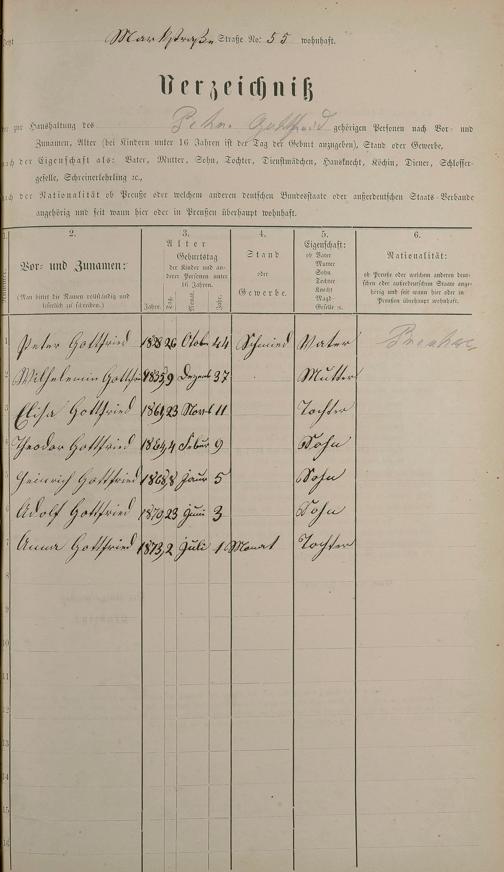 Marktstraße Straße No: 55 wohnhaft.
Verzeichniß
zur Haushaltung des Peter Gottfried gehörigen Personen nach Vor- und
Zunamen, Alter (bei Kindern unter 16 Jahren ist der Tag der Geburt anzugeben), Stand oder Gewerbe,
nach der Eigenschaft als: Vater, Mutter, Sohn, Tochter, Dienstmädchen, Hausknecht, Köchin, Diener, Schlosser-
geselle, Schreinerlehrling ꝛc.,
nach der Nationalität ob Preuße oder welchem anderen deutschen Bundesstaate oder außerdeutschen Staats-Verbande
angehörig und seit wann hier oder in Preußen überhaupt wohnhaft.
2. 3. 4. 5. 6.
Vor- und Zunamen:
(Man bittet die Namen vollständig und
leserlich zu schreiben.)
Alter
Geburtstag
der Kinder und an-
derer Personen unter
16 Jahren.
Jahre. Tag. Monat. Jahr.
Stand
oder
Gewerbe.
Eigenschaft:
ob Vater
Mutter
Sohn
Tochter
Knecht
Magd
Geselle ꝛc.
Nationalität:
ob Preuße oder welchem anderen deut-
schen oder außerdeutschen Staate ange-
hörig und seit wann hier oder in
Preußen überhaupt wohnhaft.
1 Peter Gottfried 1828 26 Octob 44 Schmied Vater
2 Wilhelmin Gottfried 1835 9 Dezemb 37 Mutter
3 Elisa Gottfried 1861 23 Novb 11 Tochter
4 Theodor Gottfried 1864 4 Febur 9 Sohn
5 Heinrich Gottfried 1868 8 Janr 5 Sohn
6 Adolf Gottfried 1870 23 Juni 3 Sohn
7 Anna Gottfried 1873 2 Juli 1 Monat Tochter
8
9
10
11
12
13
14
15
16